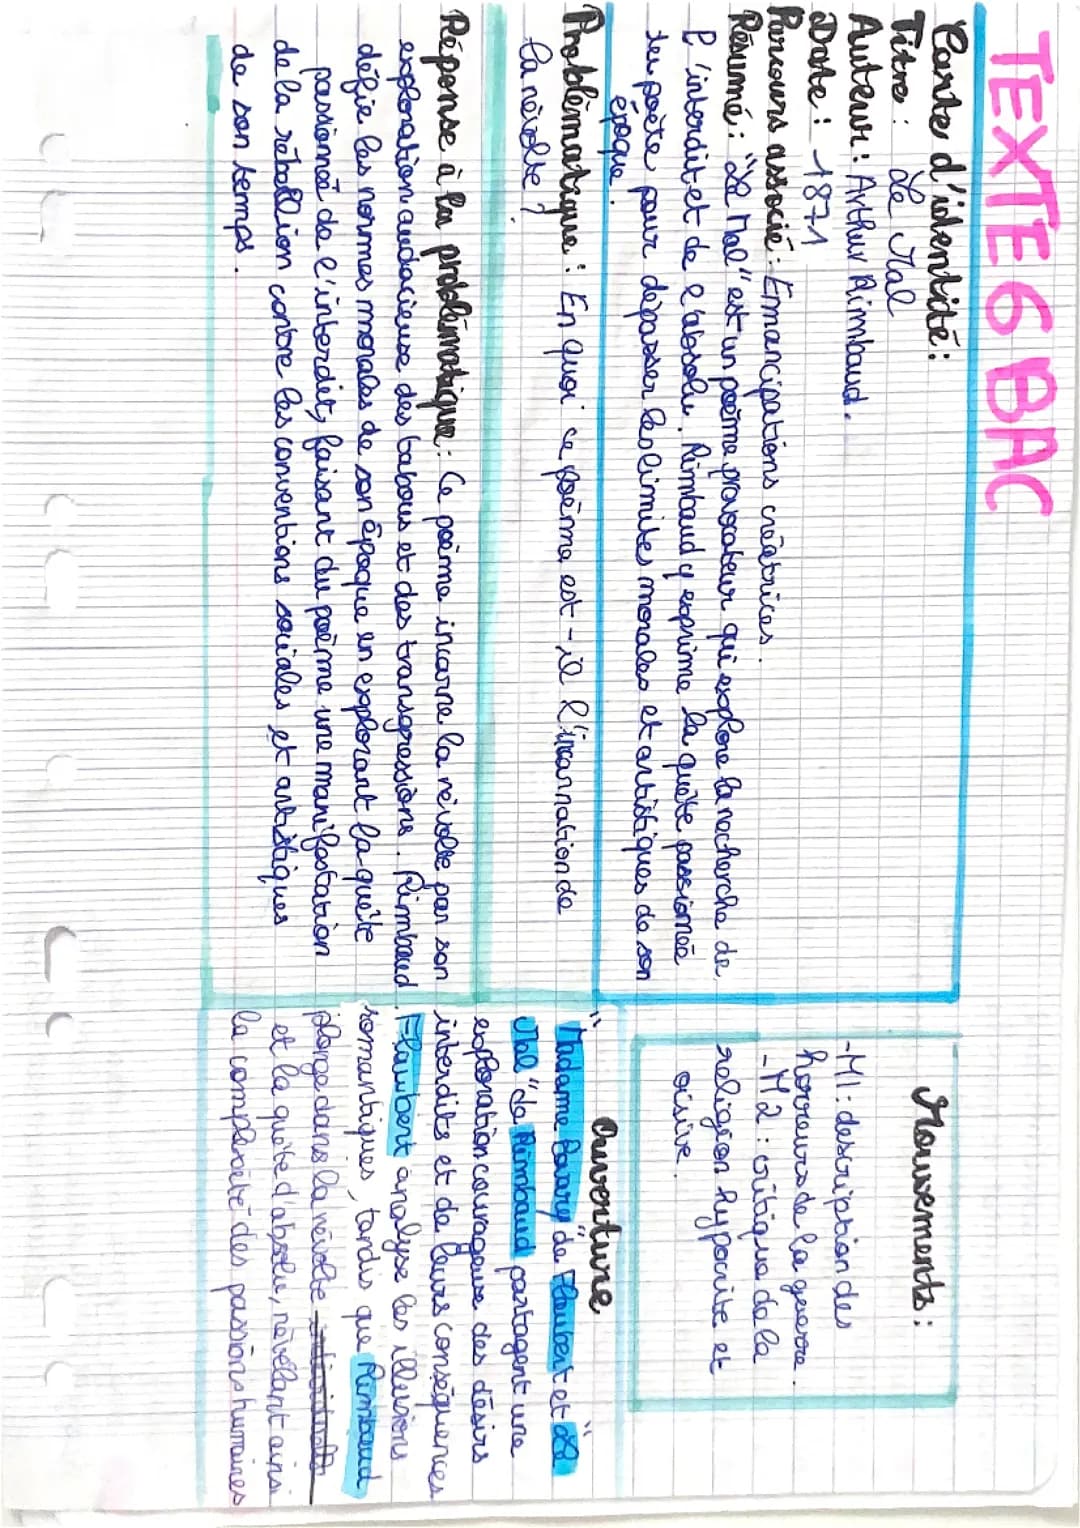 TEXTE 6 BAC
Carte d'identité :
Titre : Le Mal
Auteur : Arthur Rimbaud.
Date : 1871
Parcours associé : Emancipations créatrices.
Résumé : "Le Mal" est un poème provocateur qui explore la recherche de
l'interdit et de l'absolu. Rimbaud y exprime la quête passionnée
du poète pour dépasser les limites morales et artistiques de son
époque.
Problématique : En quoi ce poème est-il l'incarnation de
la révolte ?
Réponse à la problématique : Ce poème incarne la révolte par son
exploration audacieuse des tabous et des transgressions. Rimbaud
défie les normes morales de son époque en explorant la quête
passionnée de l'interdit, faisant du poème une manifestation
de la rébellion contre les conventions sociales et artistiques
de son temps.
Mouvements :
-M1 : description des
horreurs de la guerre.
-M2 : critique de la
religion hypocrite et
oisive.
Ouverture
"Madame Bovary" de Flaubert et "Le
Mal" de Rimbaud partagent une
exploration courageuse des désirs
interdits et de leurs conséquences
. Flaubert analyse les illusions
romantiques, tandis que Rimbaud
plonge dans la révolte
et la quête d'absolu, révélant ainsi
la complexité des passions humaines